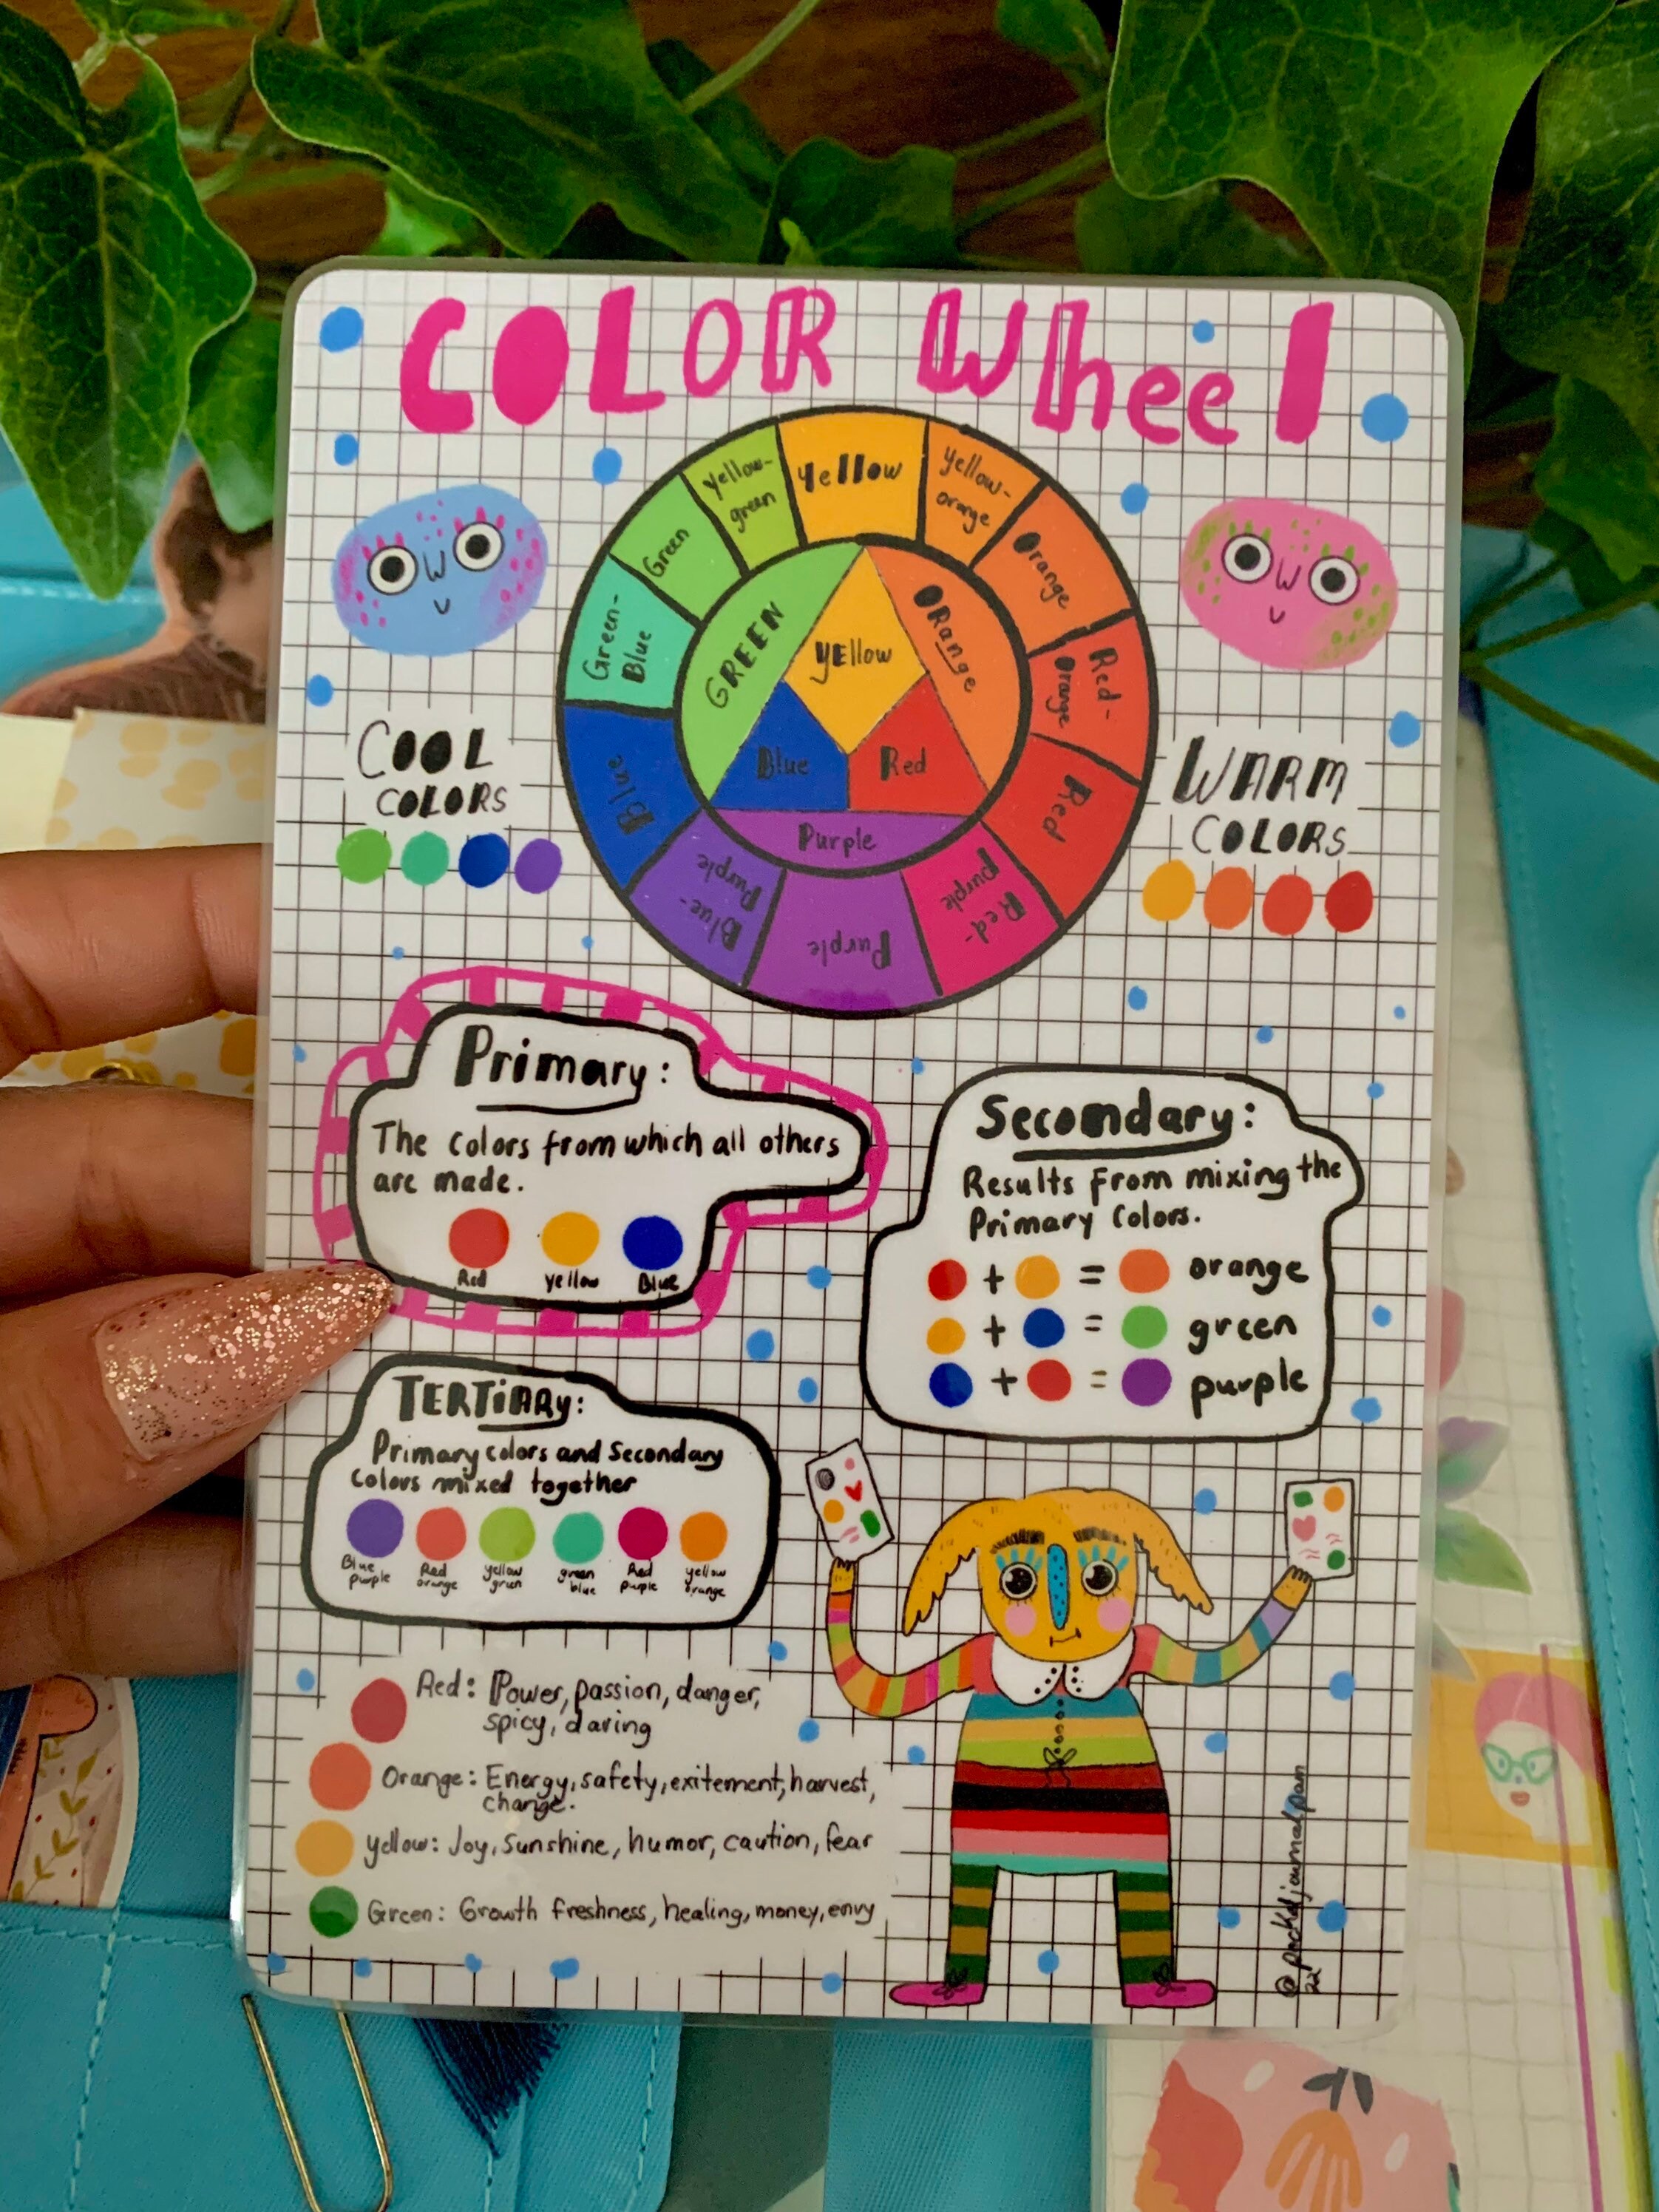 COLOR Wheel
Yellow
yellow-
orange
Orange
Red-
Orange
Red
Red-
purple
Purple
Blue-
Purple
Blue
Green-
Blue
Green
Yellow-
green
GREEN
YEllow
ORange
Blue
Red
Purple
COOL
COLORS
WARM
COLORS
Primary:
The colors from which all others
are made.
Red yellow Blue
Secondary:
Results from mixing the
Primary Colors.
+ = orange
+ = green
+ = purple
TERTiARy:
Primary colors and Secondary
Colors mixed together
Blue
purple
Red
orange
yellow
green
green
blue
Red
purple
yellow
orange
Red: Power, passion, danger,
spicy, daring
Orange: Energy, safety, exitement, harvest,
change.
yellow: Joy, Sunshine, humor, caution, fear
Green: Growth freshness, healing, money, envy
22